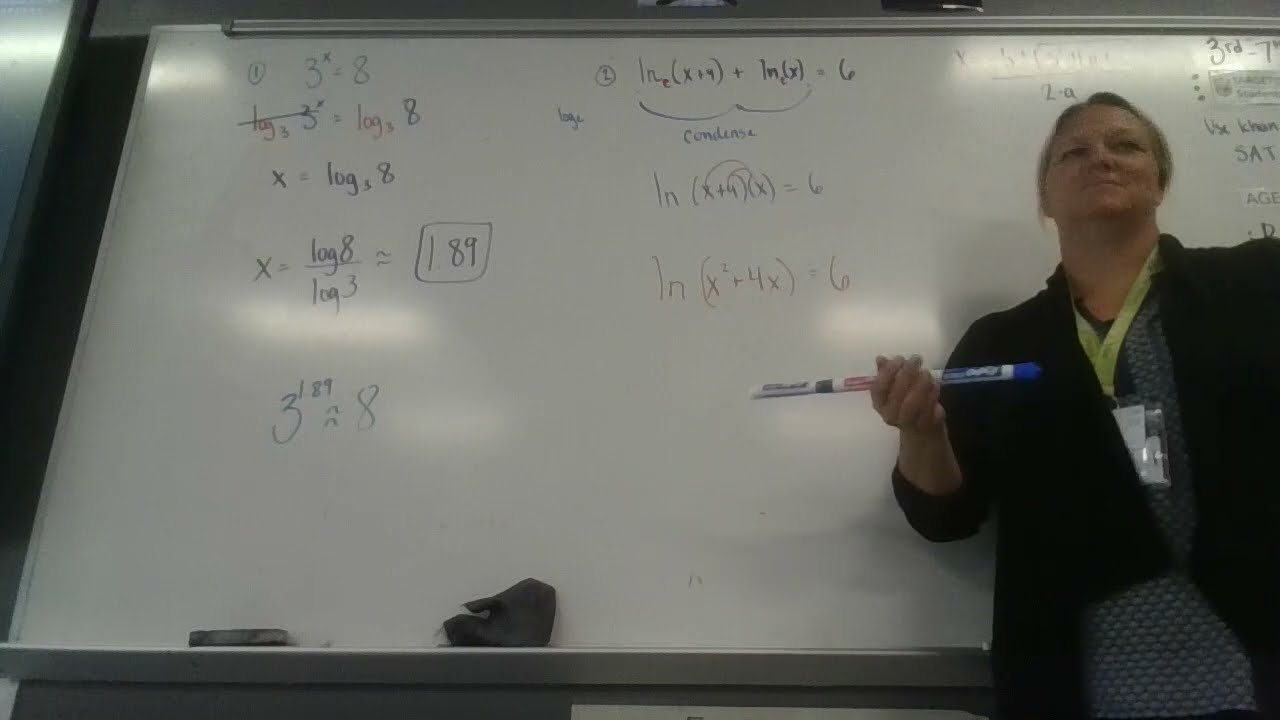 ① 3ˣ = 8
log₃ 3ˣ = log₃ 8
x = log₃ 8
x = log 8 / log 3 ≈ 1.89
3^1.89 ≈ 8
② lnₑ(x+4) + lnₑ(x) = 6
logₑ
condense
ln (x+4)(x) = 6
ln (x²+4x) = 6
2·a
3rd - 7
Use khan
SAT
AGE